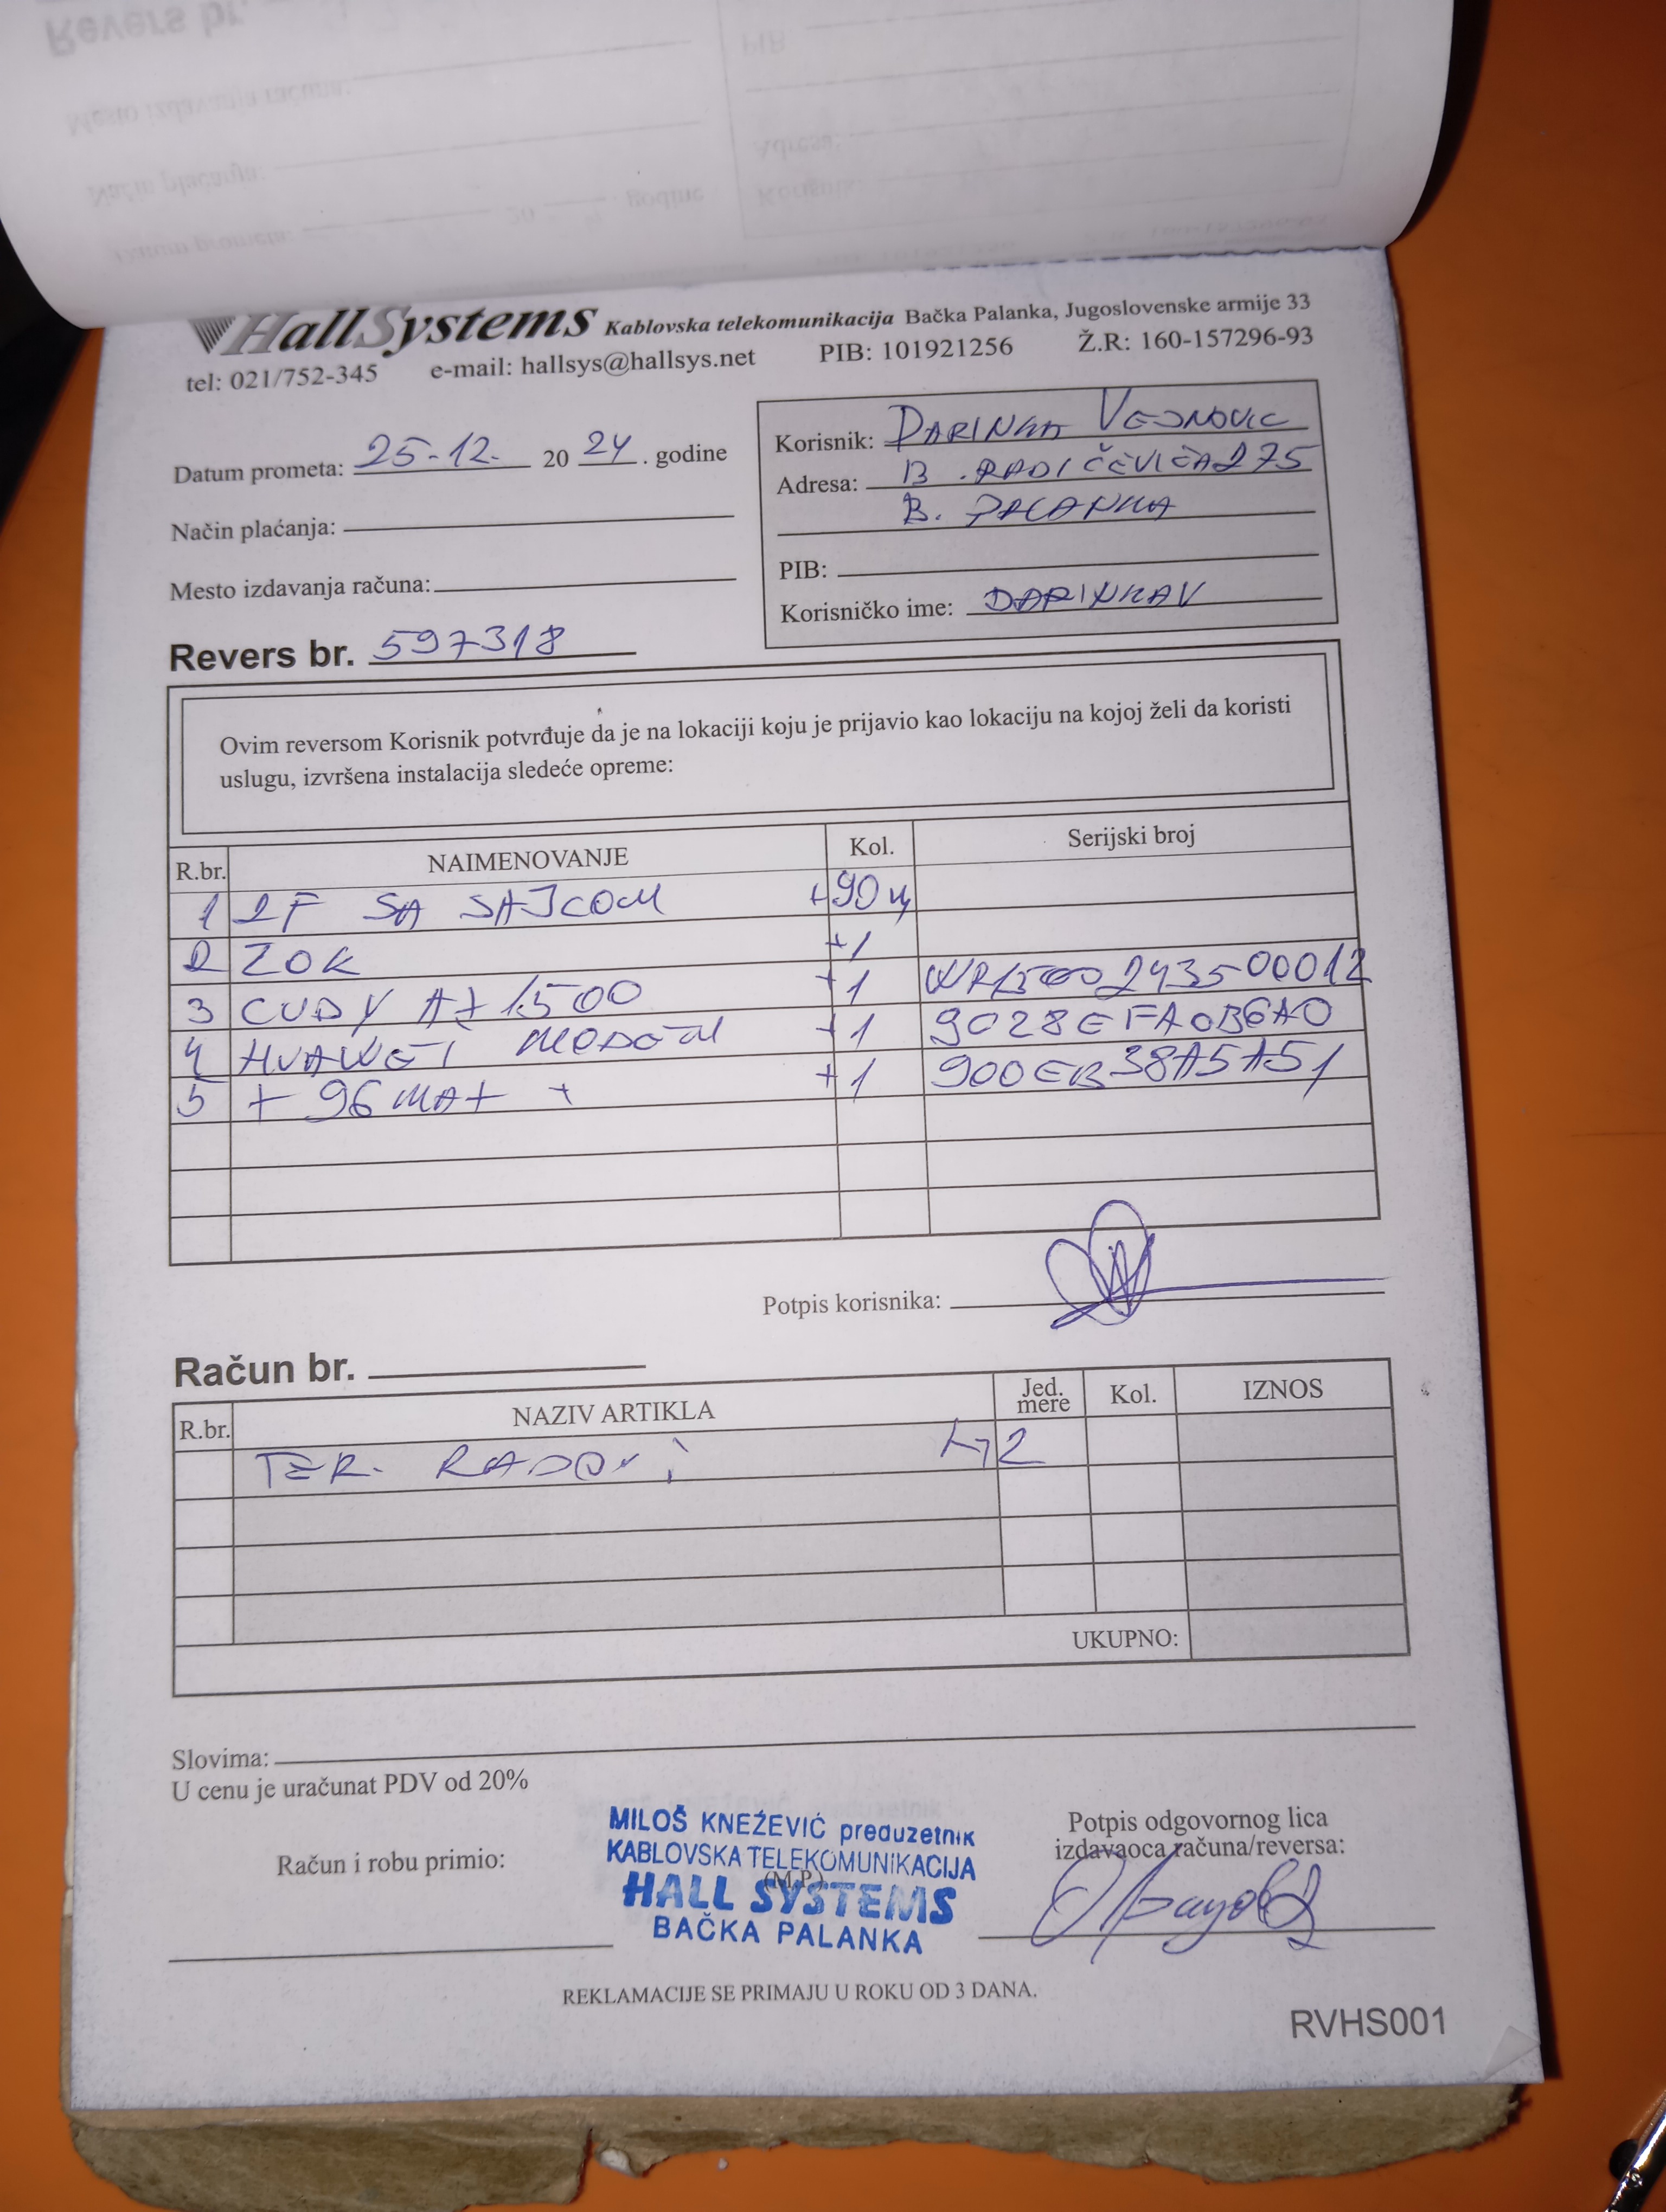 Revers br.
HallSystems Kablovska telekomunikacija Bačka Palanka, Jugoslovenske armije 33
tel: 021/752-345 e-mail: hallsys@hallsys.net PIB: 101921256 Ž.R: 160-157296-93
Datum prometa: 25-12. 20 24 . godine
Način plaćanja:
Mesto izdavanja računa:
Korisnik: DARINKA VEJNOVIC
Adresa: B. RADIČEVIĆA 275
B. PALANKA
PIB:
Korisničko ime: DARINKAV
Revers br. 597318
Ovim reversom Korisnik potvrđuje da je na lokaciji koju je prijavio kao lokaciju na kojoj želi da koristi
uslugu, izvršena instalacija sledeće opreme:
R.br. NAIMENOVANJE Kol. Serijski broj
1 2F SA SAJCOM +90 m
2 ZOK +1
3 CUDY AX 1500 +1 WR1500243500012
4 HUAWEI MODEM +1 9028EFA0B6A0
5 X96 MAX + +1 900EB38A5A51
Potpis korisnika:
Račun br.
R.br. NAZIV ARTIKLA Jed. mere Kol. IZNOS
TER. RADOVI 2
UKUPNO:
Slovima:
U cenu je uračunat PDV od 20%
Račun i robu primio:
MILOŠ KNEŽEVIĆ preduzetnik
KABLOVSKA TELEKOMUNIKACIJA
(M.P.)
HALL SYSTEMS
BAČKA PALANKA
Potpis odgovornog lica
izdavaoca računa/reversa:
REKLAMACIJE SE PRIMAJU U ROKU OD 3 DANA.
RVHS001